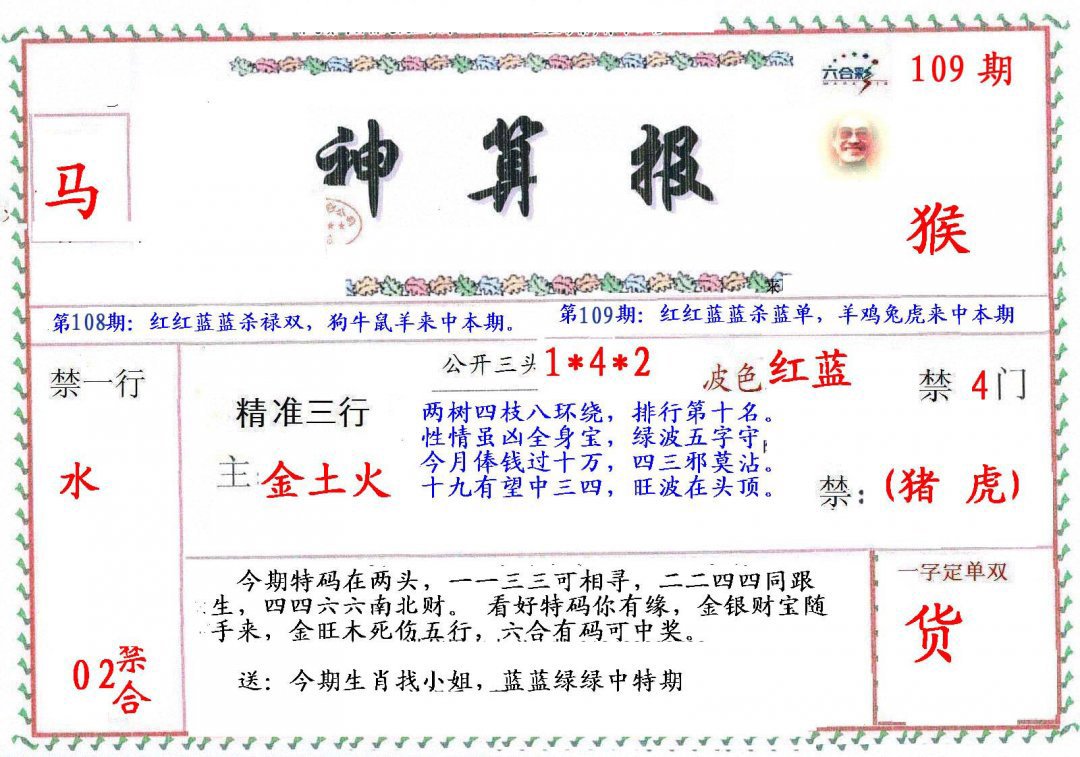 六合彩
109 期
神算报
马
猴
第108期：红红蓝蓝杀禄双，狗牛鼠羊来中本期。
第109期：红红蓝蓝杀蓝单，羊鸡兔虎来中本期
禁一行
水
02禁合
公开三头 1*4*2
波色 红蓝
精准三行
主: 金土火
两树四枝八环绕，排行第十名。
性情虽凶全身宝，绿波五字守
今月俸钱过十万，四三邪莫沾。
十九有望中三四，旺波在头顶。
禁 4门
禁：(猪 虎)
今期特码在两头，一一三三可相寻，二二四四同跟
生，四四六六南北财。 看好特码你有缘，金银财宝随
手来，金旺木死伤五行，六合有码可中奖。
送：今期生肖找小姐，蓝蓝绿绿中特期
一字定单双
货